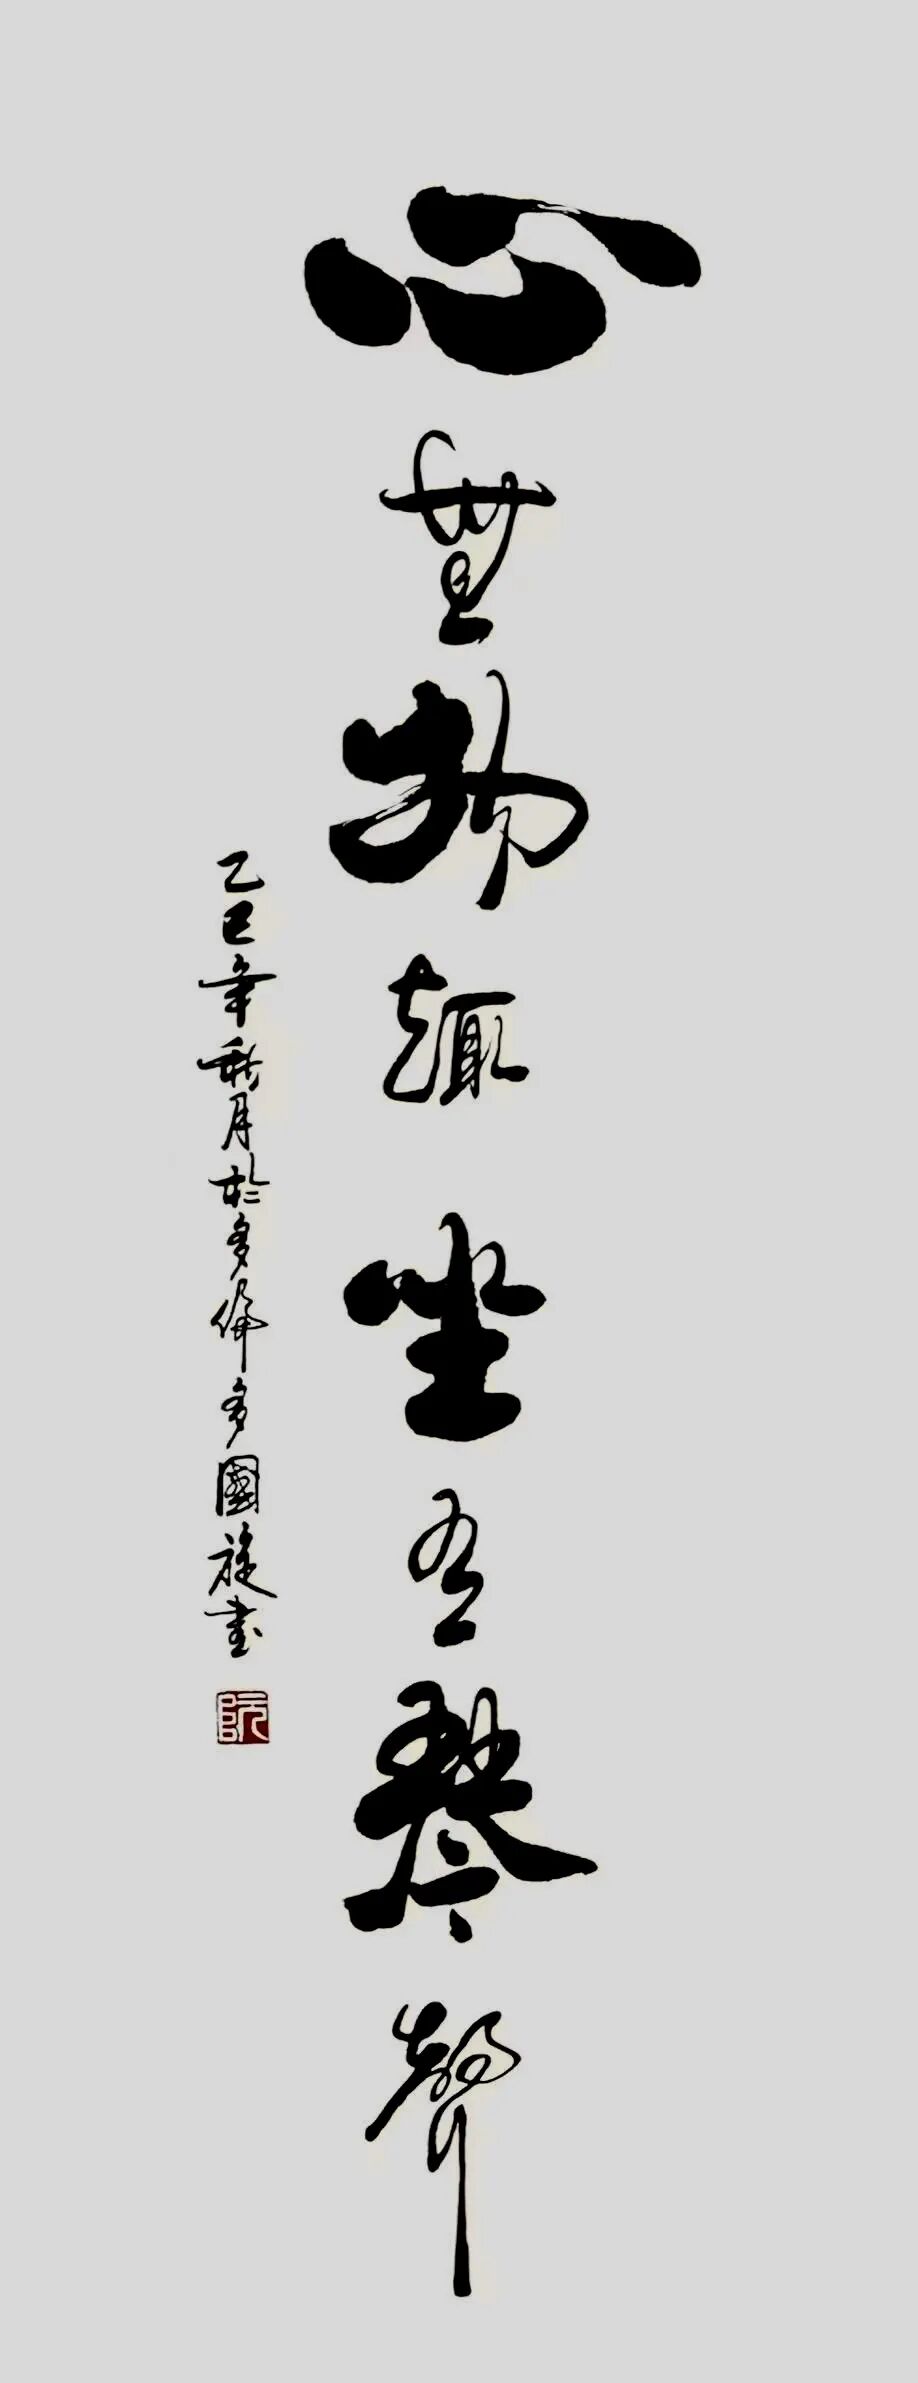 心無物趣坐有琴聲
乙巳年秋月於多倫多國旋書
阮